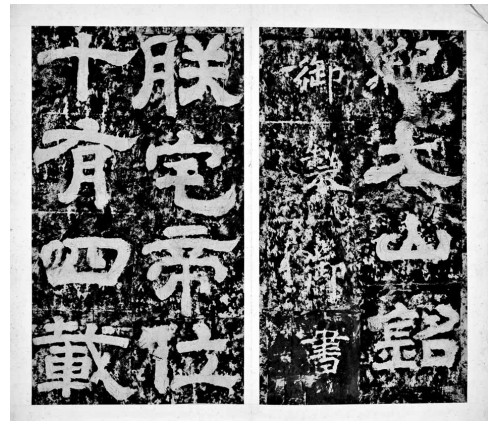 紀太山銘
御製御書
朕宅帝位
十有四載